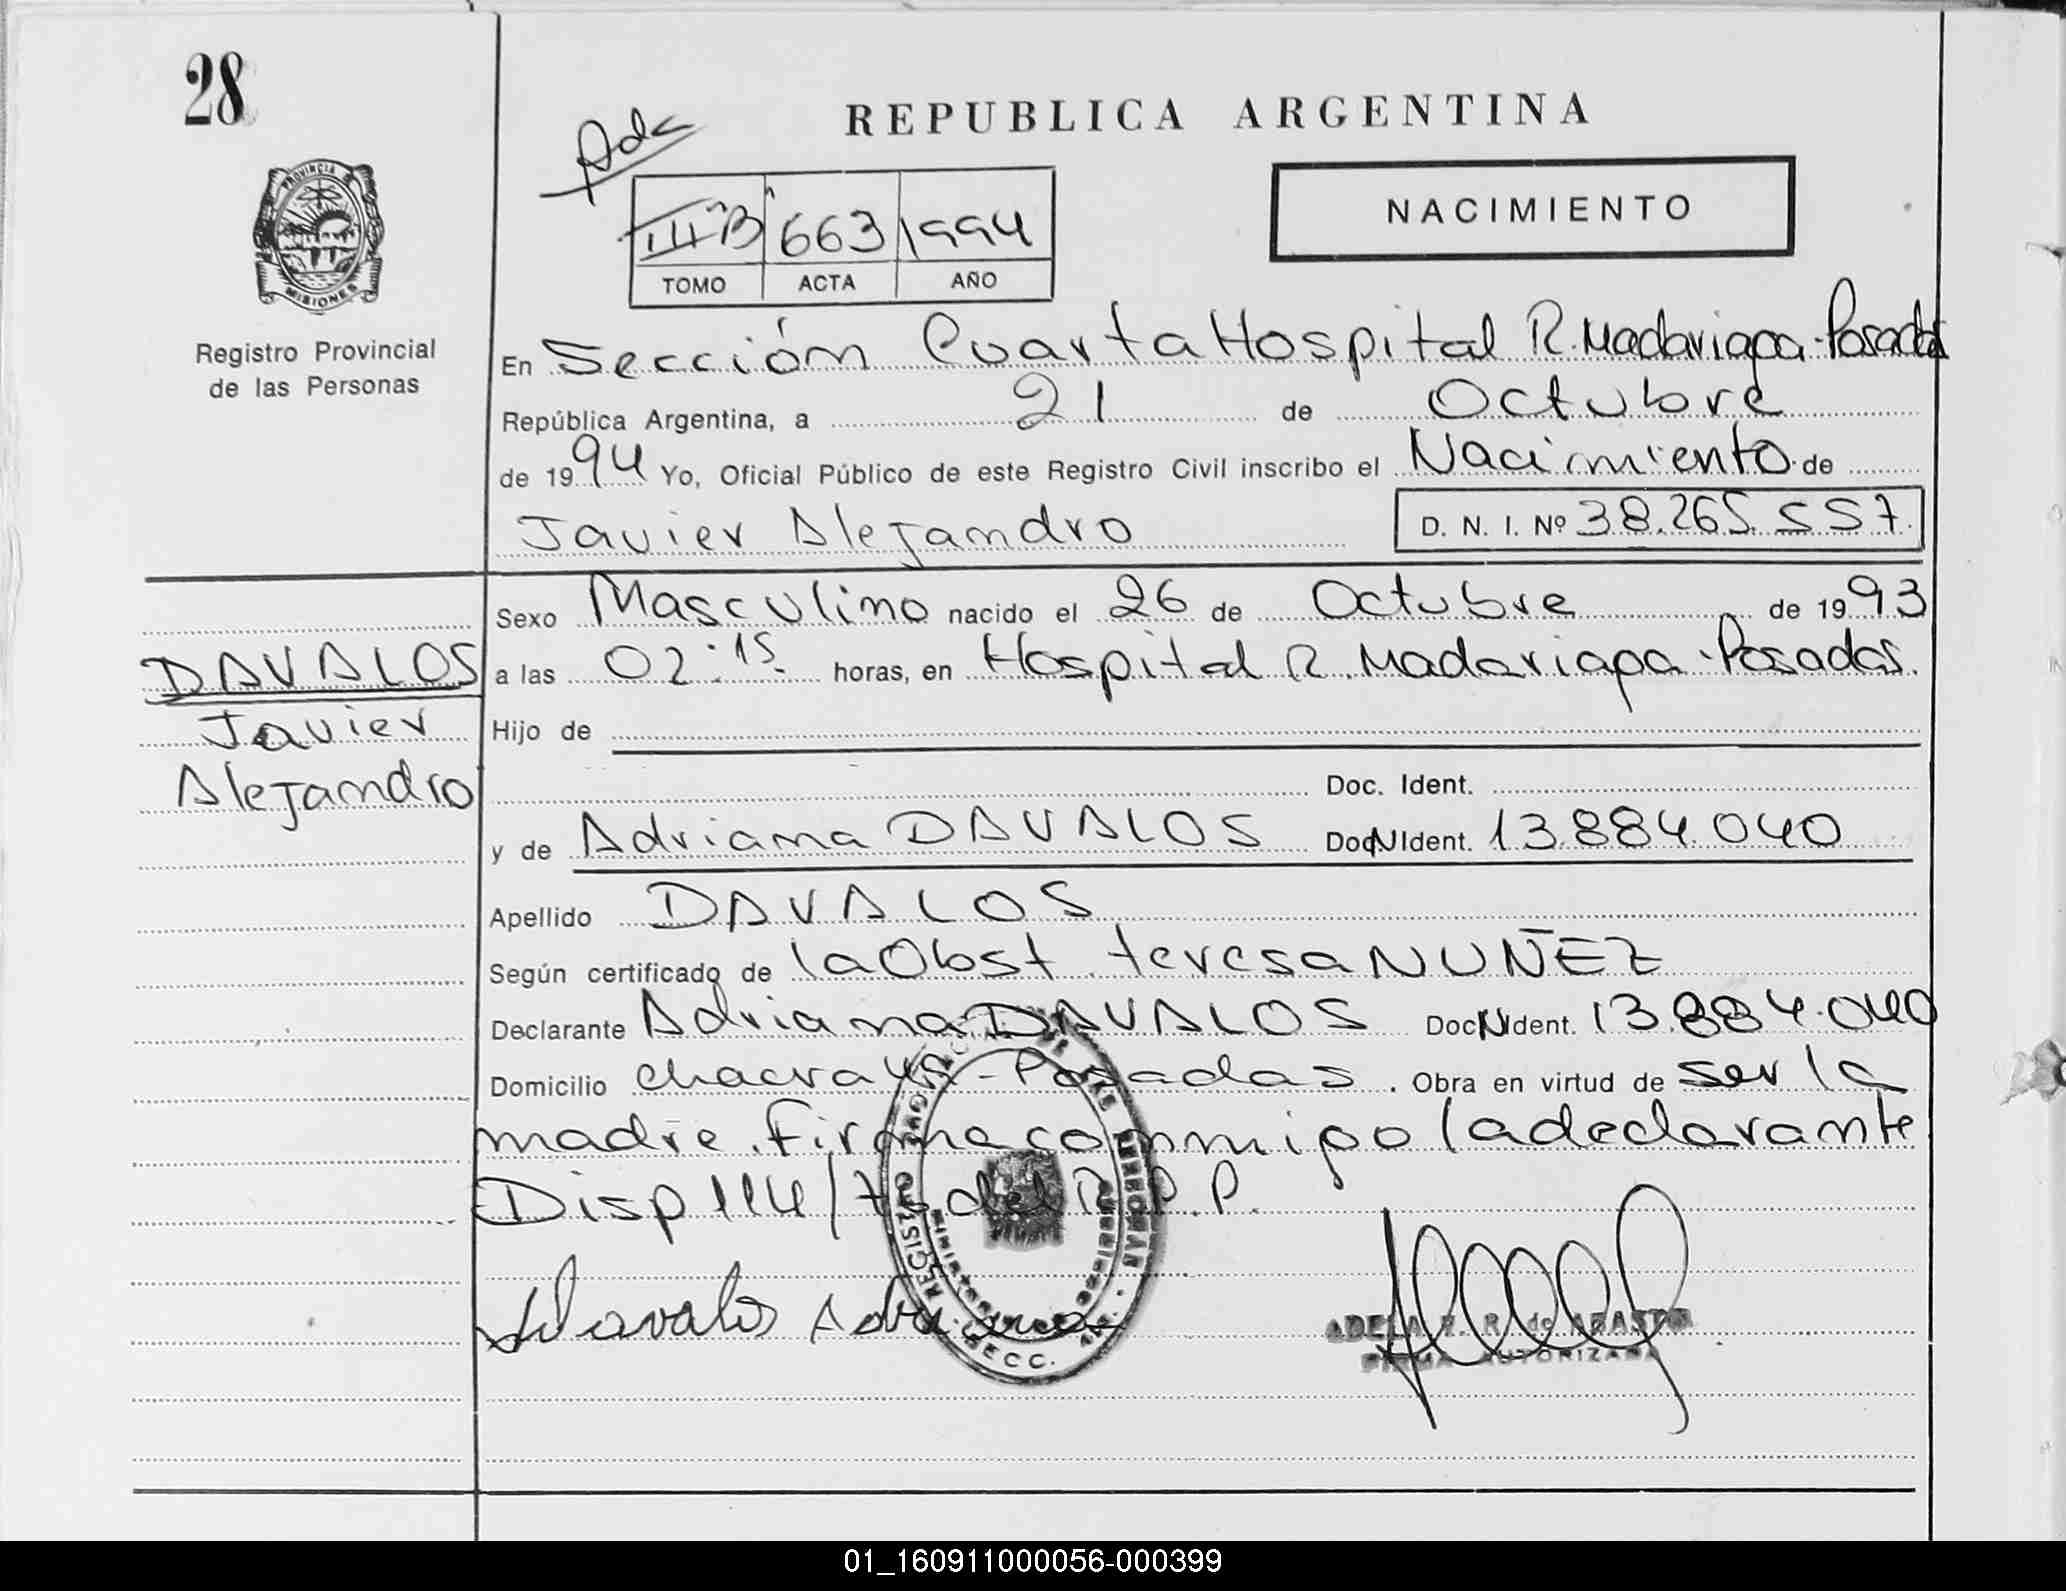 28
Ads
REPUBLICA ARGENTINA
NACIMIENTO
III B 663 1994
TOMO ACTA AÑO
PROVINCIA DE
MISIONES
Registro Provincial
de las Personas
En Sección Cuarta Hospital R. Madariaga - Posadas
República Argentina, a 21 de Octubre
de 1994 Yo, Oficial Público de este Registro Civil inscribo el Nacimiento de
Javier Alejandro D. N. I. Nº 38.265.557.
Sexo Masculino nacido el 26 de Octubre de 1993
a las 02:15 horas, en Hospital R. Madariaga - Posadas.
DAVALOS
Javier
Alejandro
Hijo de
Doc. Ident.
y de Adriana DAVALOS Doc N Ident. 13.884.040
Apellido DAVALOS
Según certificado de la Obst. teresa NUÑEZ
Declarante Adriana DAVALOS Doc N Ident. 13.884.040
Domicilio chacra - Posadas. Obra en virtud de ser la
madre. Firma conmigo la declarante
Disp 114/ del R.P.P.
Davalos Adriana
SECC. 4ta.
ADELA R. de
FIRMA AUTORIZADA
01_160911000056-000399